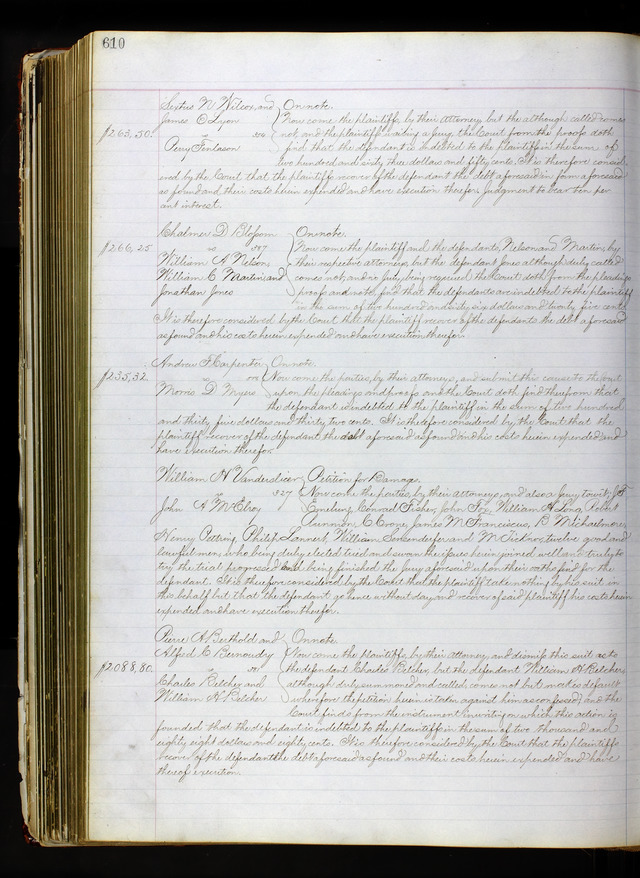 610
Sextus N Wilcox, and } On note.
James C Lyon } Now come the plaintiffs, by their attorney, but the although called comes
$263,50. vs } not, and the plaintiff waiving a jury, the Court from the proofs doth
Perry Finlason } find that the defendant is indebted to the plaintiffs in the sum of
two hundred and sixty three dollars and fifty cents. It is therefore consid-
ered by the Court that the plaintiffs recover of the defendant the debt aforesaid in form aforesaid
as found and their costs herein expended and have execution therefor judgment to bear ten per
cent interest.
Chalmer D Blossom } On note.
$266,25 vs } Now come the plaintiff and the defendants, Nelson and Martin, by
William A Nelson } their respective attorneys, but the defendant Jones although duly called
William C Martin and } comes not, and no jury being required the Court doth from the pleadings
Jonathan Jones } proofs and note, find that the defendants are indebted to the plaintiff
in the sum of two hundred and sixty six dollars and twenty five cents
It is therefore considered by the Court that the plaintiff recover of the defendants the debt aforesaid
as found and his costs herein expended and have execution therefor.
Andrew F Carpenter } On note.
$235,32. vs } Now come the parties, by their attorneys, and submit this cause to the Court
Morris D Myers } upon the pleadings and proofs and the Court doth find therefrom that
the defendant is indebted to the plaintiff in the sum of two hundred
and thirty five dollars and thirty two cents. It is therefore considered by the Court that the
plaintiff recover of the defendant the debt aforesaid as found and his costs herein expended and
have execution therefor.
William H Vanderslice } Petition for Damages.
327 } Now come the parties, by their attorneys, and also a jury towit,
John A McElroy } Conrad Fisher, John Fox, William A Long, Robert
C Crone, James M Franciscus, B M
Henry Petring, Philip Lannert, William Sensenderfer and M Ticknor, twelve good and
lawful men, who being duly elected tried and sworn the issue herein joined well and truly to
try, the trial progressed and being finished the Jury aforesaid upon their oaths find for the
defendant. It is therefore considered by the Court that the plaintiff take nothing by his suit in
this behalf but that the defendant go hence without day and recover of said plaintiff his costs herein
expended and have execution therefor.
Pierre A Berthold and } On note.
Alfred C Bernoudy } Now come the plaintiffs, by their attorney, and dismiss this suit as to
$2088,80. vs } the defendant Charles Belcher, but the defendant William H Belcher
Charles Belcher and } although duly summoned and called comes not but makes default
William H Belcher } wherefore the petition herein is taken against him as confessed; and the
Court finds from the instrument in writing on which this action is
founded that the defendant is indebted to the plaintiffs in the sum of two thousand and
eighty eight dollars and eighty cents. It is therefore considered by the Court that the plaintiffs
recover of the defendant the debt aforesaid as found and their costs herein expended and have
thereof execution.